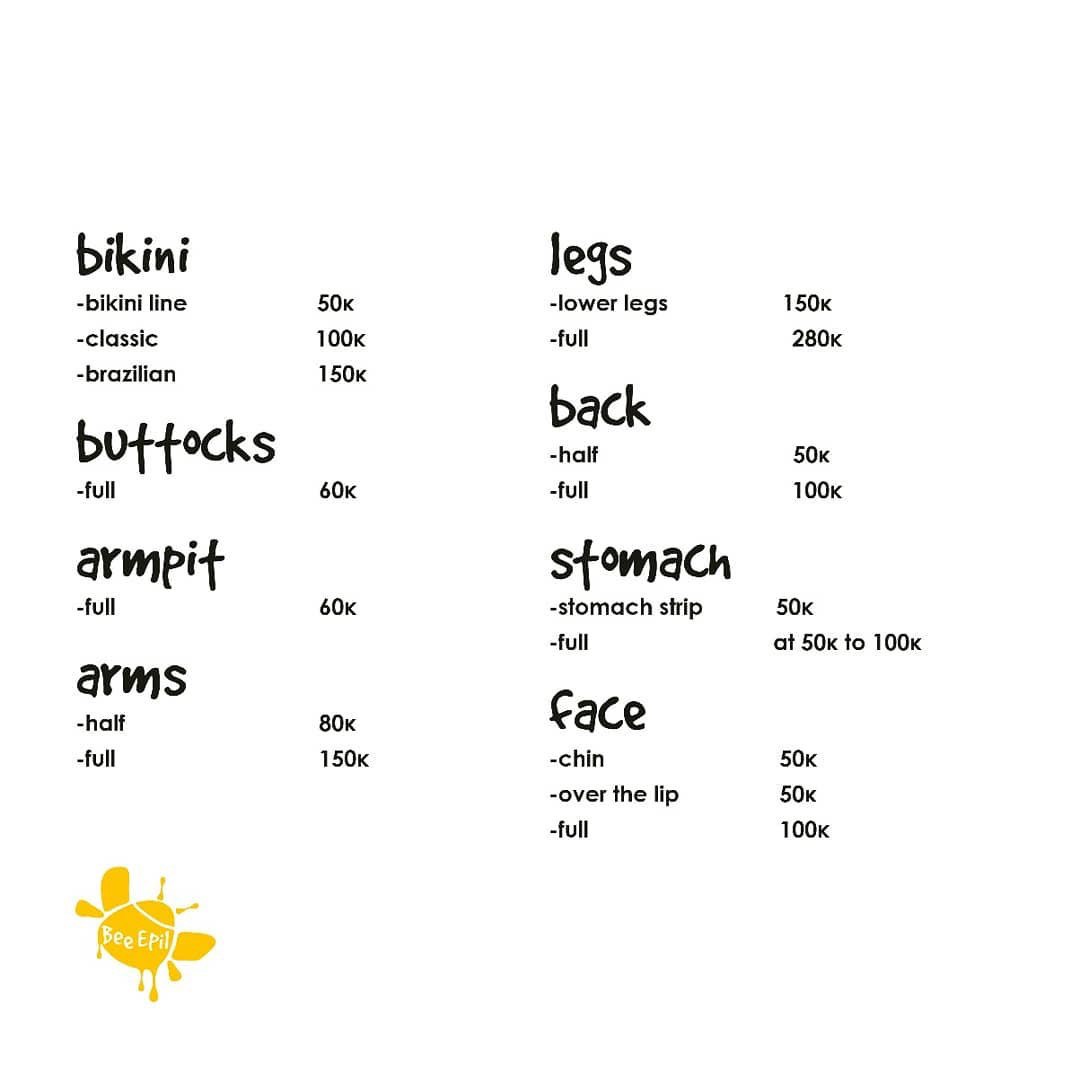 bikini
-bikini line 50к
-classic 100к
-brazilian 150к
buttocks
-full 60к
armpit
-full 60к
arms
-half 80к
-full 150к
legs
-lower legs 150к
-full 280к
back
-half 50к
-full 100к
stomach
-stomach strip 50к
-full at 50к to 100к
face
-chin 50к
-over the lip 50к
-full 100к
Bee Epil